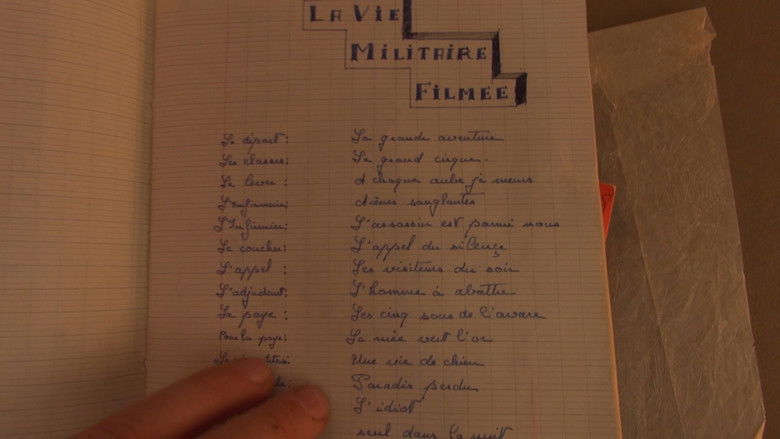 LA VIE
MILITAIRE
FILMEE
Le départ: La grande aventure
Les classes: Le grand cirque.
Le lever : A chaque aube je meurs
L'infirmerie: Arènes sanglantes
L'Infirmier: L'assassin est parmi nous
Le coucher: L'appel du silence
L'appel : Les visiteurs du soir
L'adjudant: L'homme à abattre
La paye : Les cinq sous de l'avare
La ruée vers l'or
Une vie de chien
Paradis perdu
L'idiot
seul dans la nuit